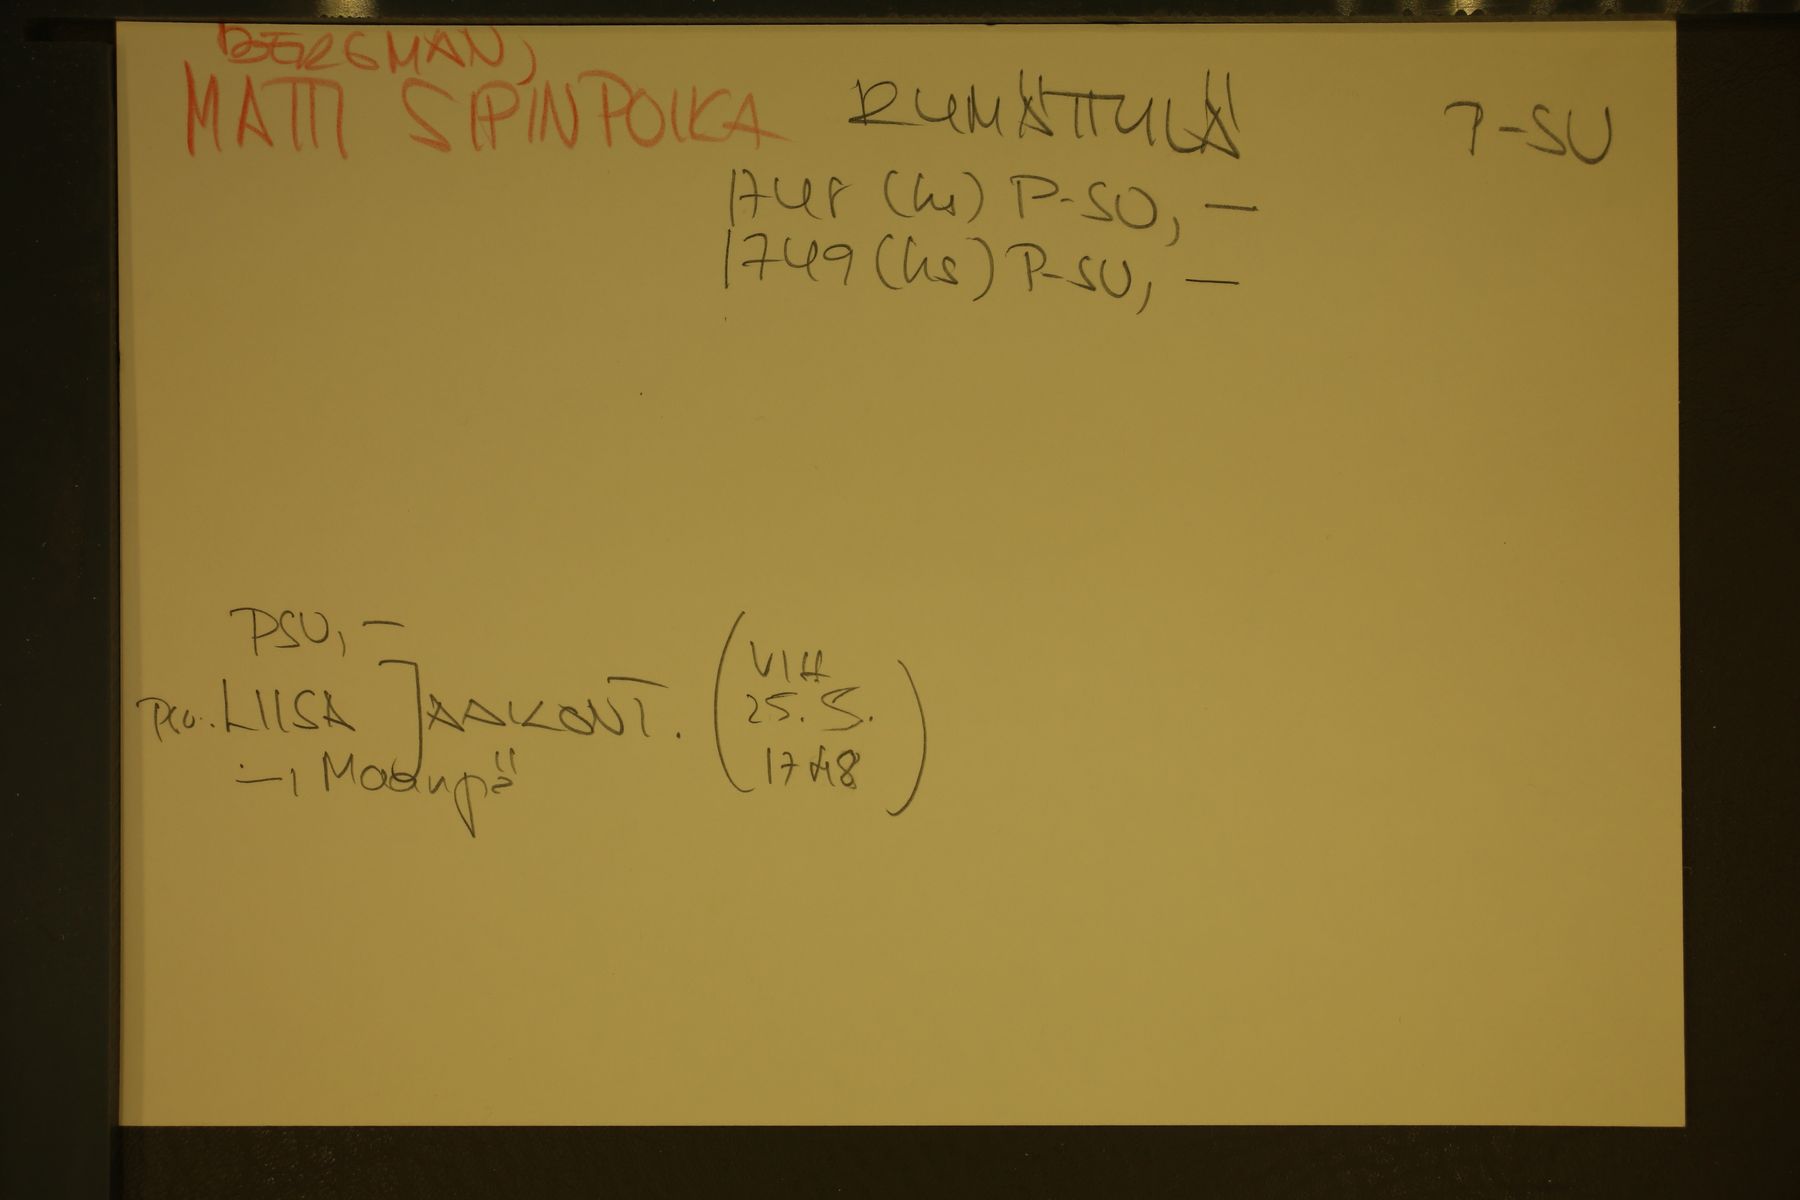 BERGMAN,
MATTI SIPINPOIKA RUMÄTTULÄ P-SU
1748 (hs) P-SO, —
1749 (hs) P-SU, —
PSU, —
LIISA JAAKONT.
—, Maanpää
(VIH 25.5. 1748)